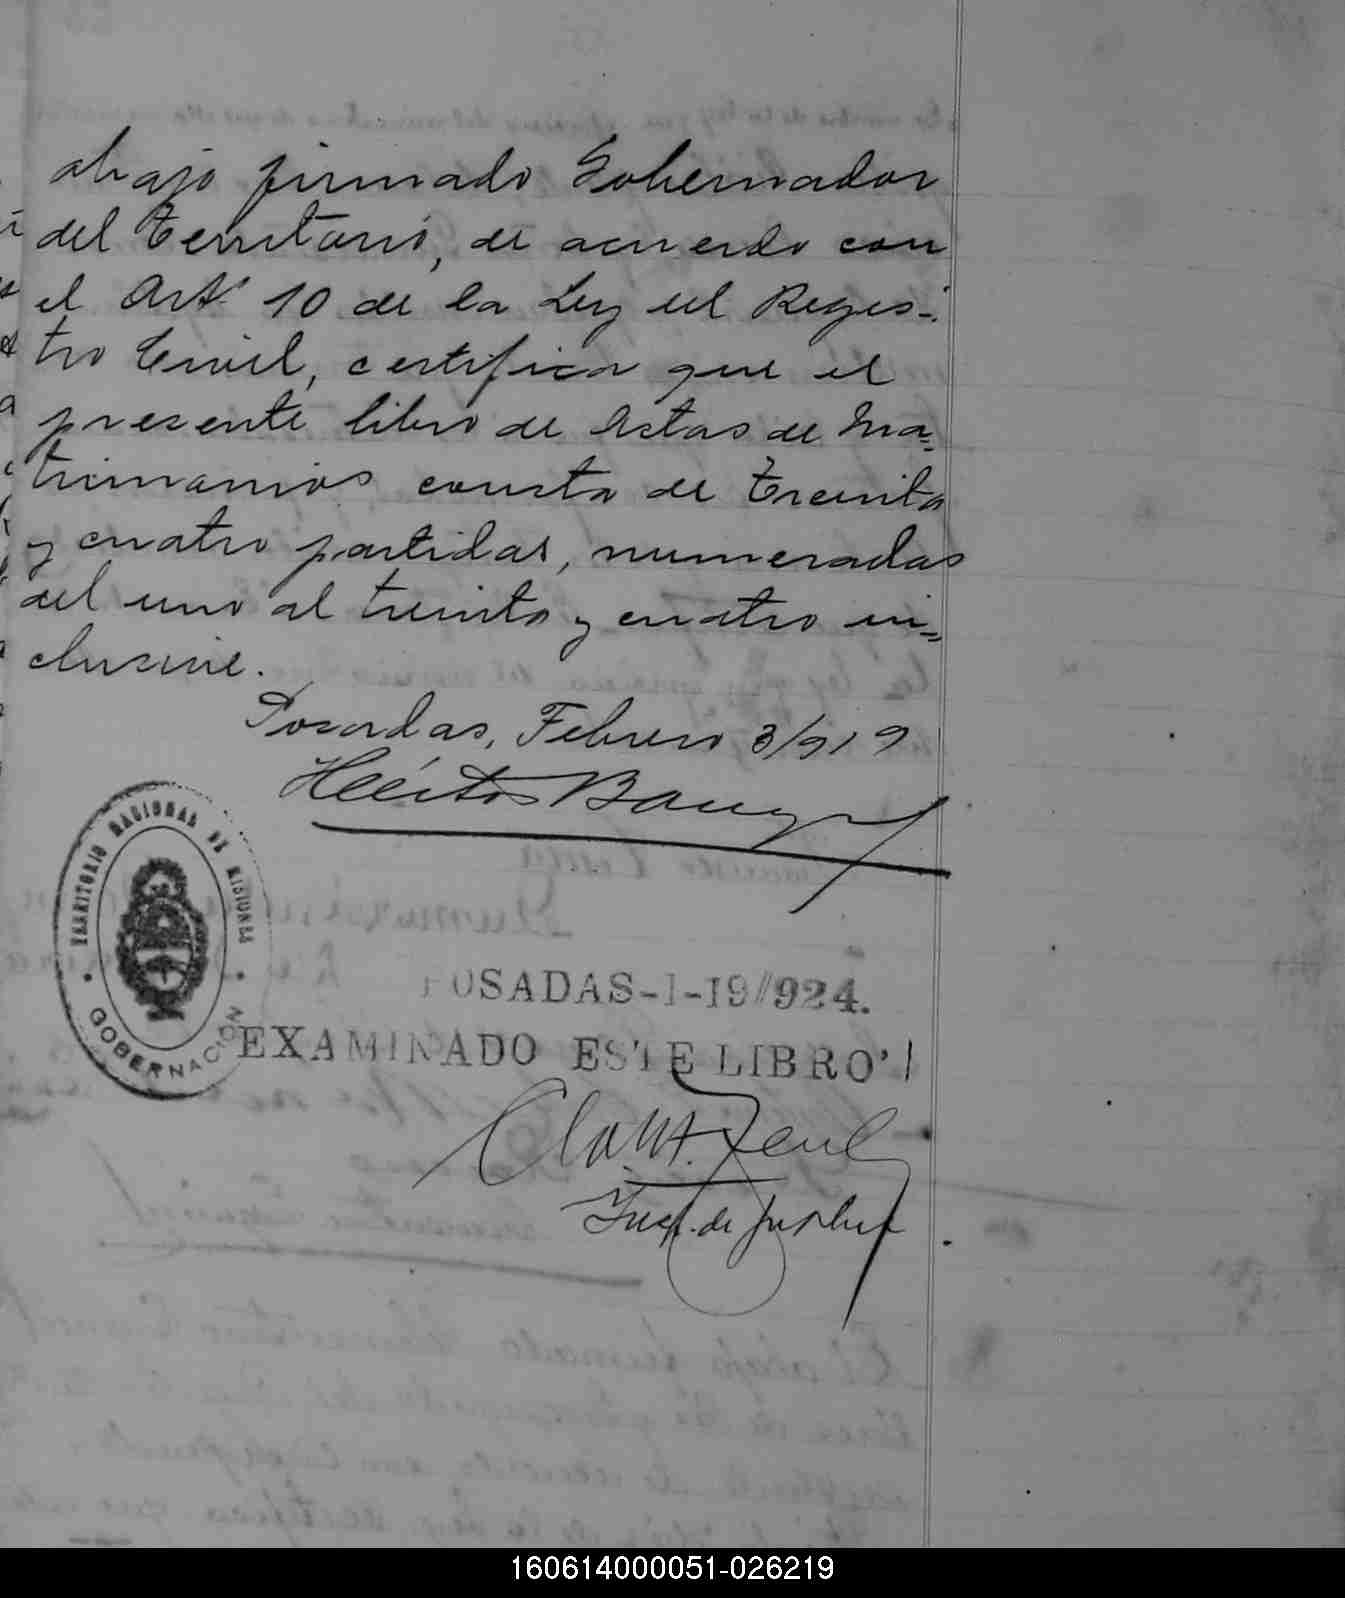 abajo firmado Gobernador
del Territorio, de acuerdo con
el Art.º 10 de la Ley del Regis-
tro Civil, certifica que el
presente libro de Actas de Ma=
trimonios consta de treinta
y cuatro partidas, numeradas
del uno al treinta y cuatro in=
clusive.
Posadas, Febrero 3/919
Héctor Barreyro
TERRITORIO NACIONAL DE MISIONES
GOBERNACION
POSADAS-1-19//924.
EXAMINADO ESTE LIBRO
Insp. de Justicia
160614000051-026219